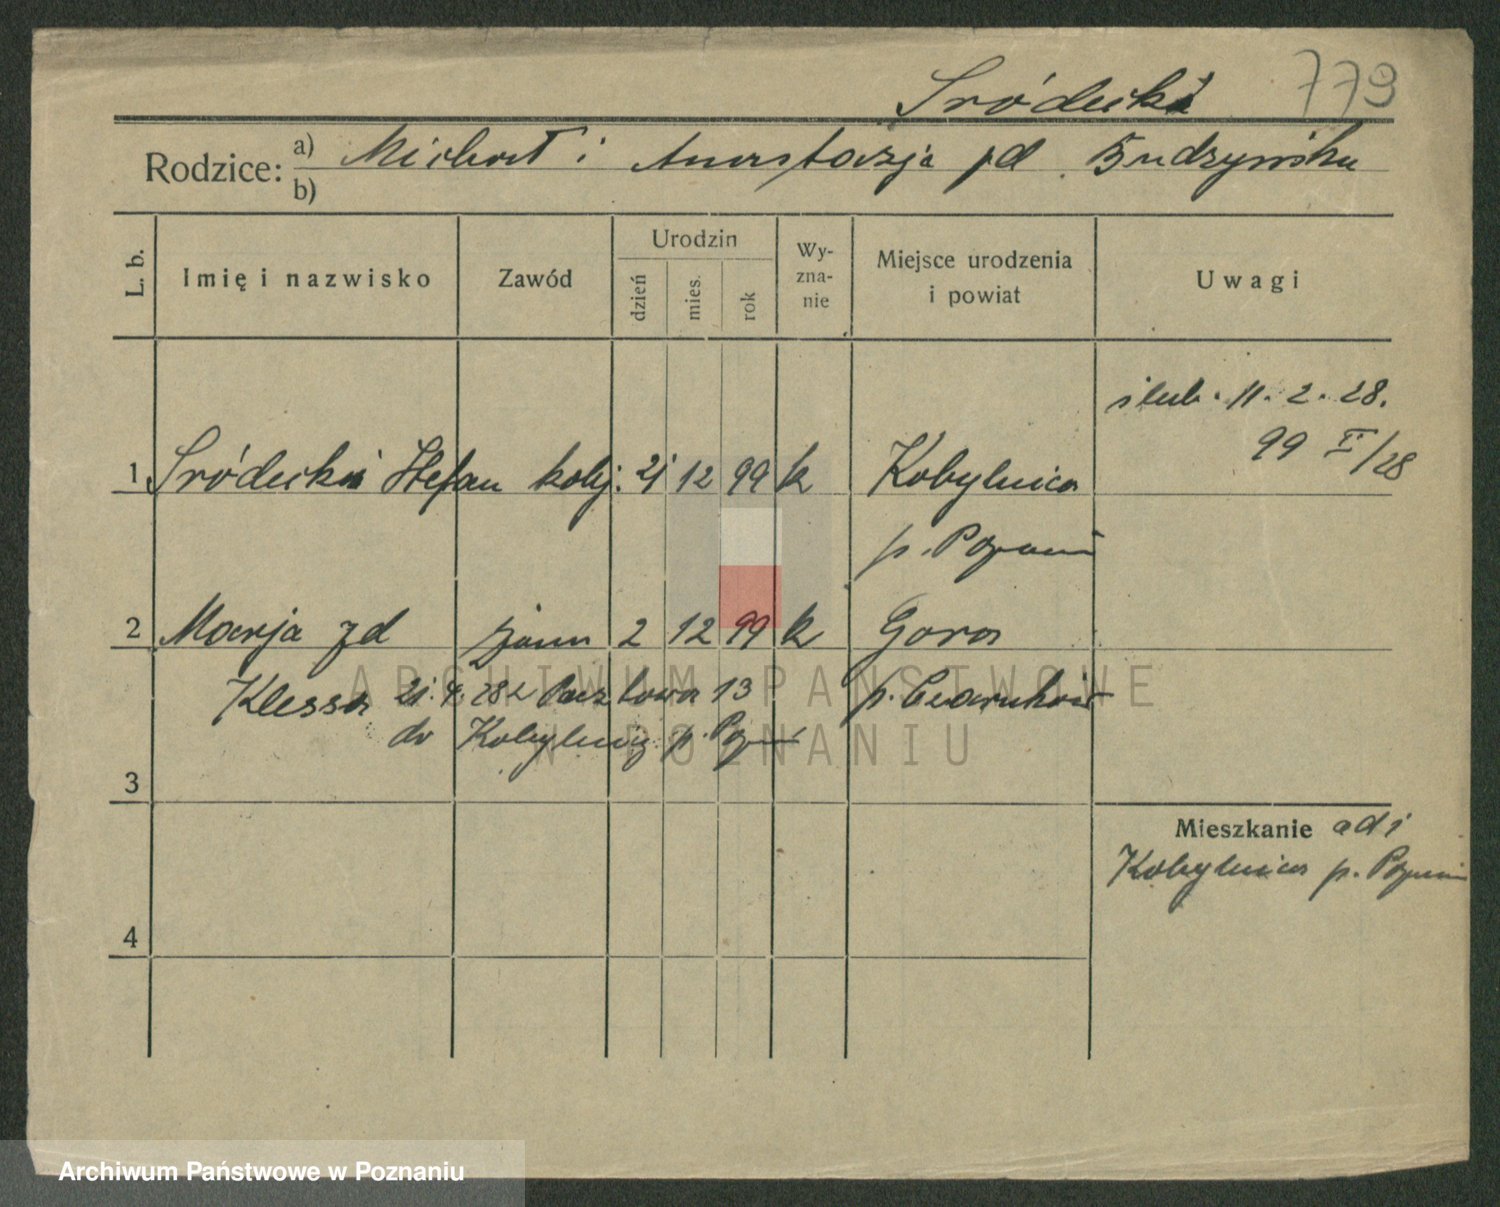 Sródecki 779
Rodzice: a) Michał i Anastazja zd Budzyńska
b)
L. b. Imię i nazwisko Zawód Urodzin dzień mies. rok Wy-zna-nie Miejsce urodzenia i powiat Uwagi
ślub. 11. 2. 28.
99 II/28
1 Sródecki Stefan kolej. 21 12 99 k Kobylnica
p. Poznań
2 Marja zd 2 12 99 k Gora
Klessa 21. 4. 28 z Pocztowa 13 p. Czarnków
do Kobylnicy p. Pozn
3
Mieszkanie
Kobylnica p. Poznań
4
ARCHIWUM PAŃSTWOWE
W POZNANIU
Archiwum Państwowe w Poznaniu